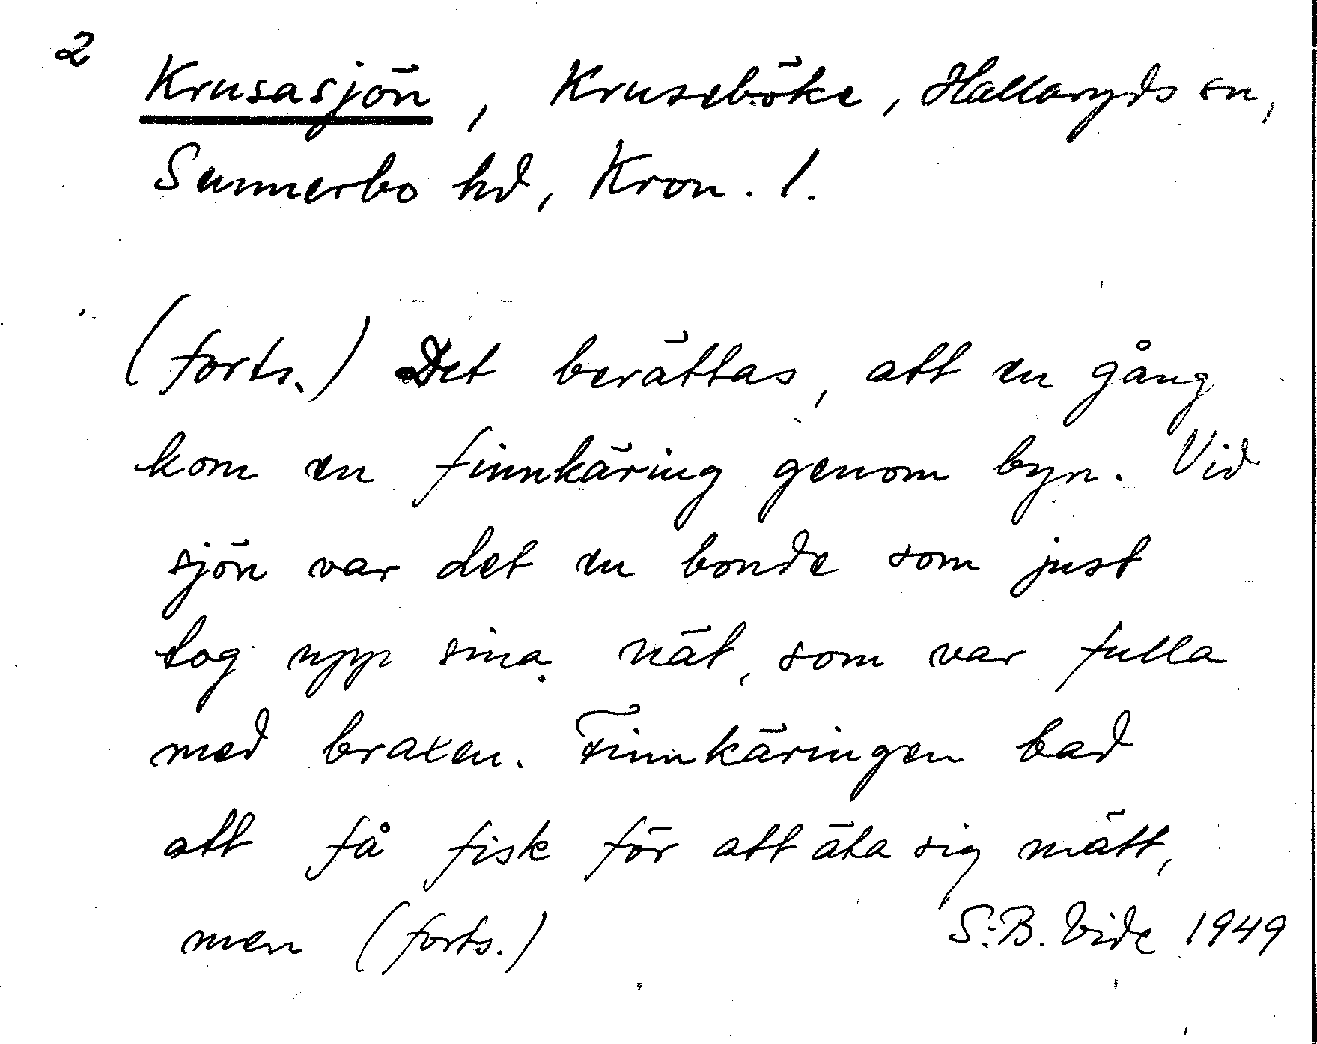 2
Krusasjön, Kruseböke, Hallaryds sn,
Sunnerbo hd, Kron. l.
(forts.) Det berättas, att en gång
kom en finnkäring genom byn. Vid
sjön var det en bonde som just
tog upp sina nät, som var fulla
med braxen. Finnkäringen bad
att få fisk för att äta sig mätt,
men (forts.) S.-B. Vide 1949